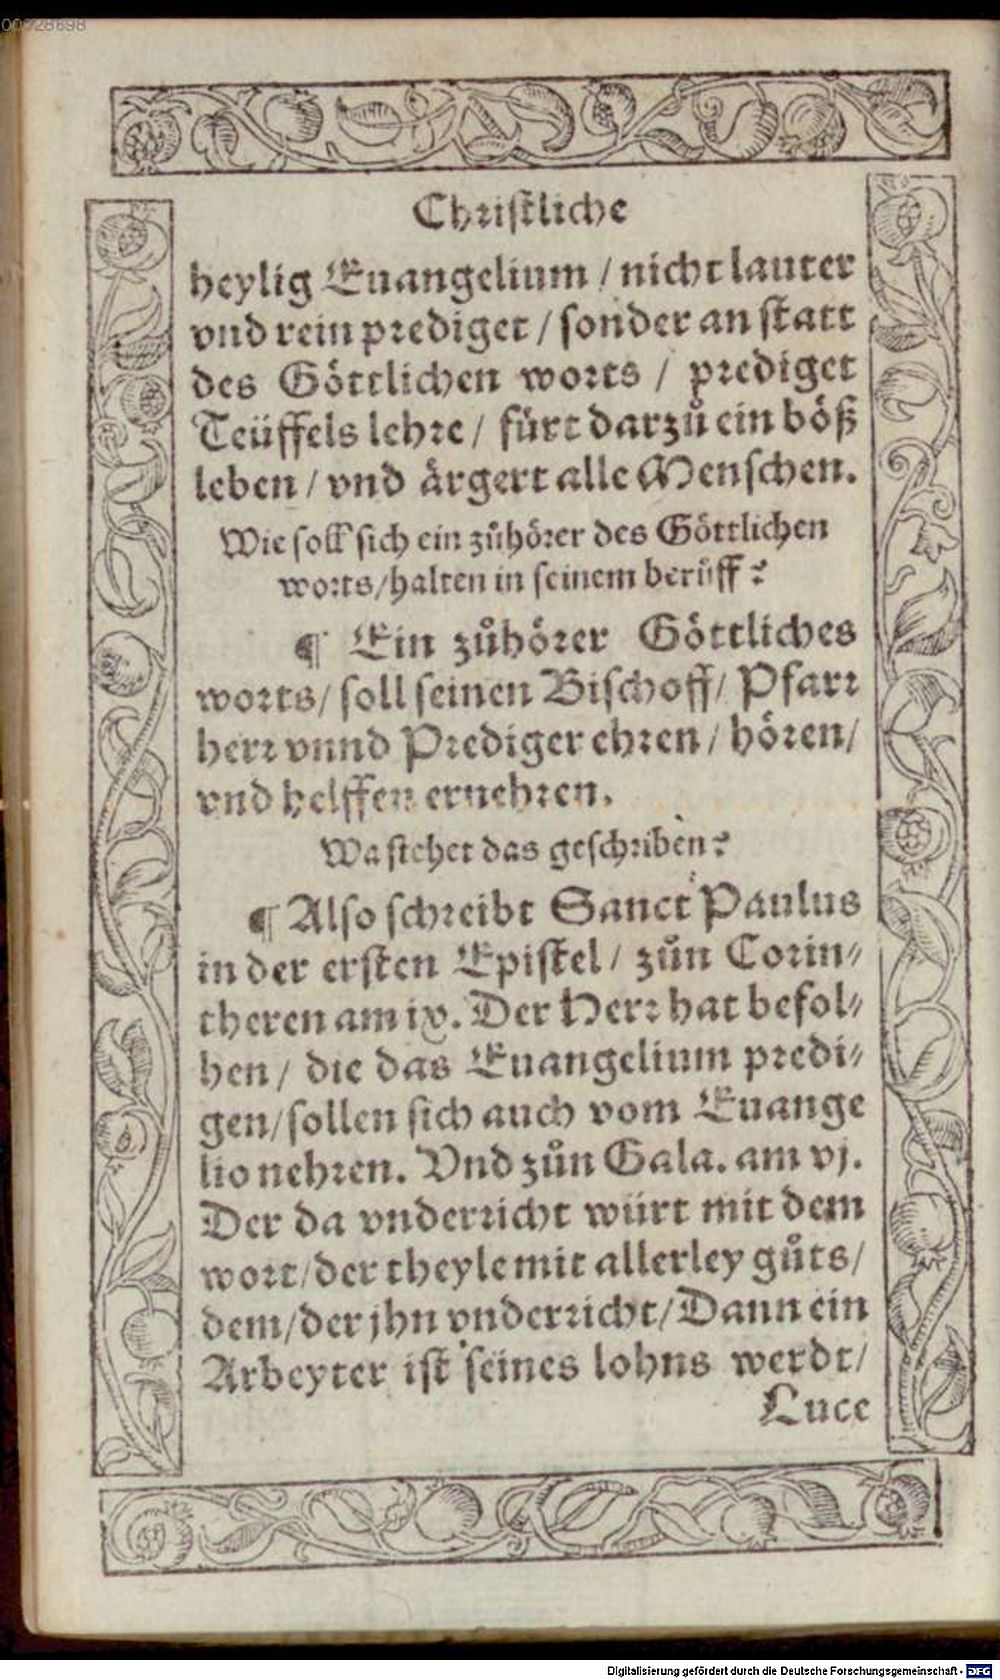 00028698
Christliche
heylig Euangelium / nicht lauter
vnd rein prediget / sonder an statt
des Göttlichen worts / prediget
Teüffels lehre / fürt darzů ein böß
leben / vnd ärgert alle Menschen.
Wie soll sich ein zůhörer des Göttlichen
worts/halten in seinem berůff?
¶ Ein zůhörer Göttliches
worts/ soll seinen Bischoff/ Pfarr
herr vnnd Prediger ehren / hören/
vnd helffen ernehren.
Wa stehet das geschriben?
¶ Also schreibt Sanct Paulus
in der ersten Epistel / zůn Corin⸗
theren am ix. Der Herr hat befol⸗
hen / die das Euangelium predi⸗
gen/sollen sich auch vom Euange
lio nehren. Vnd zůn Gala. am vj.
Der da vnderricht würt mit dem
wort/der theyle mit allerley gůts/
dem/der jhn vnderricht/Dann ein
Arbeyter ist seines lohns werdt/
Luce
Digitalisierung gefördert durch die Deutsche Forschungsgemeinschaft - DFG